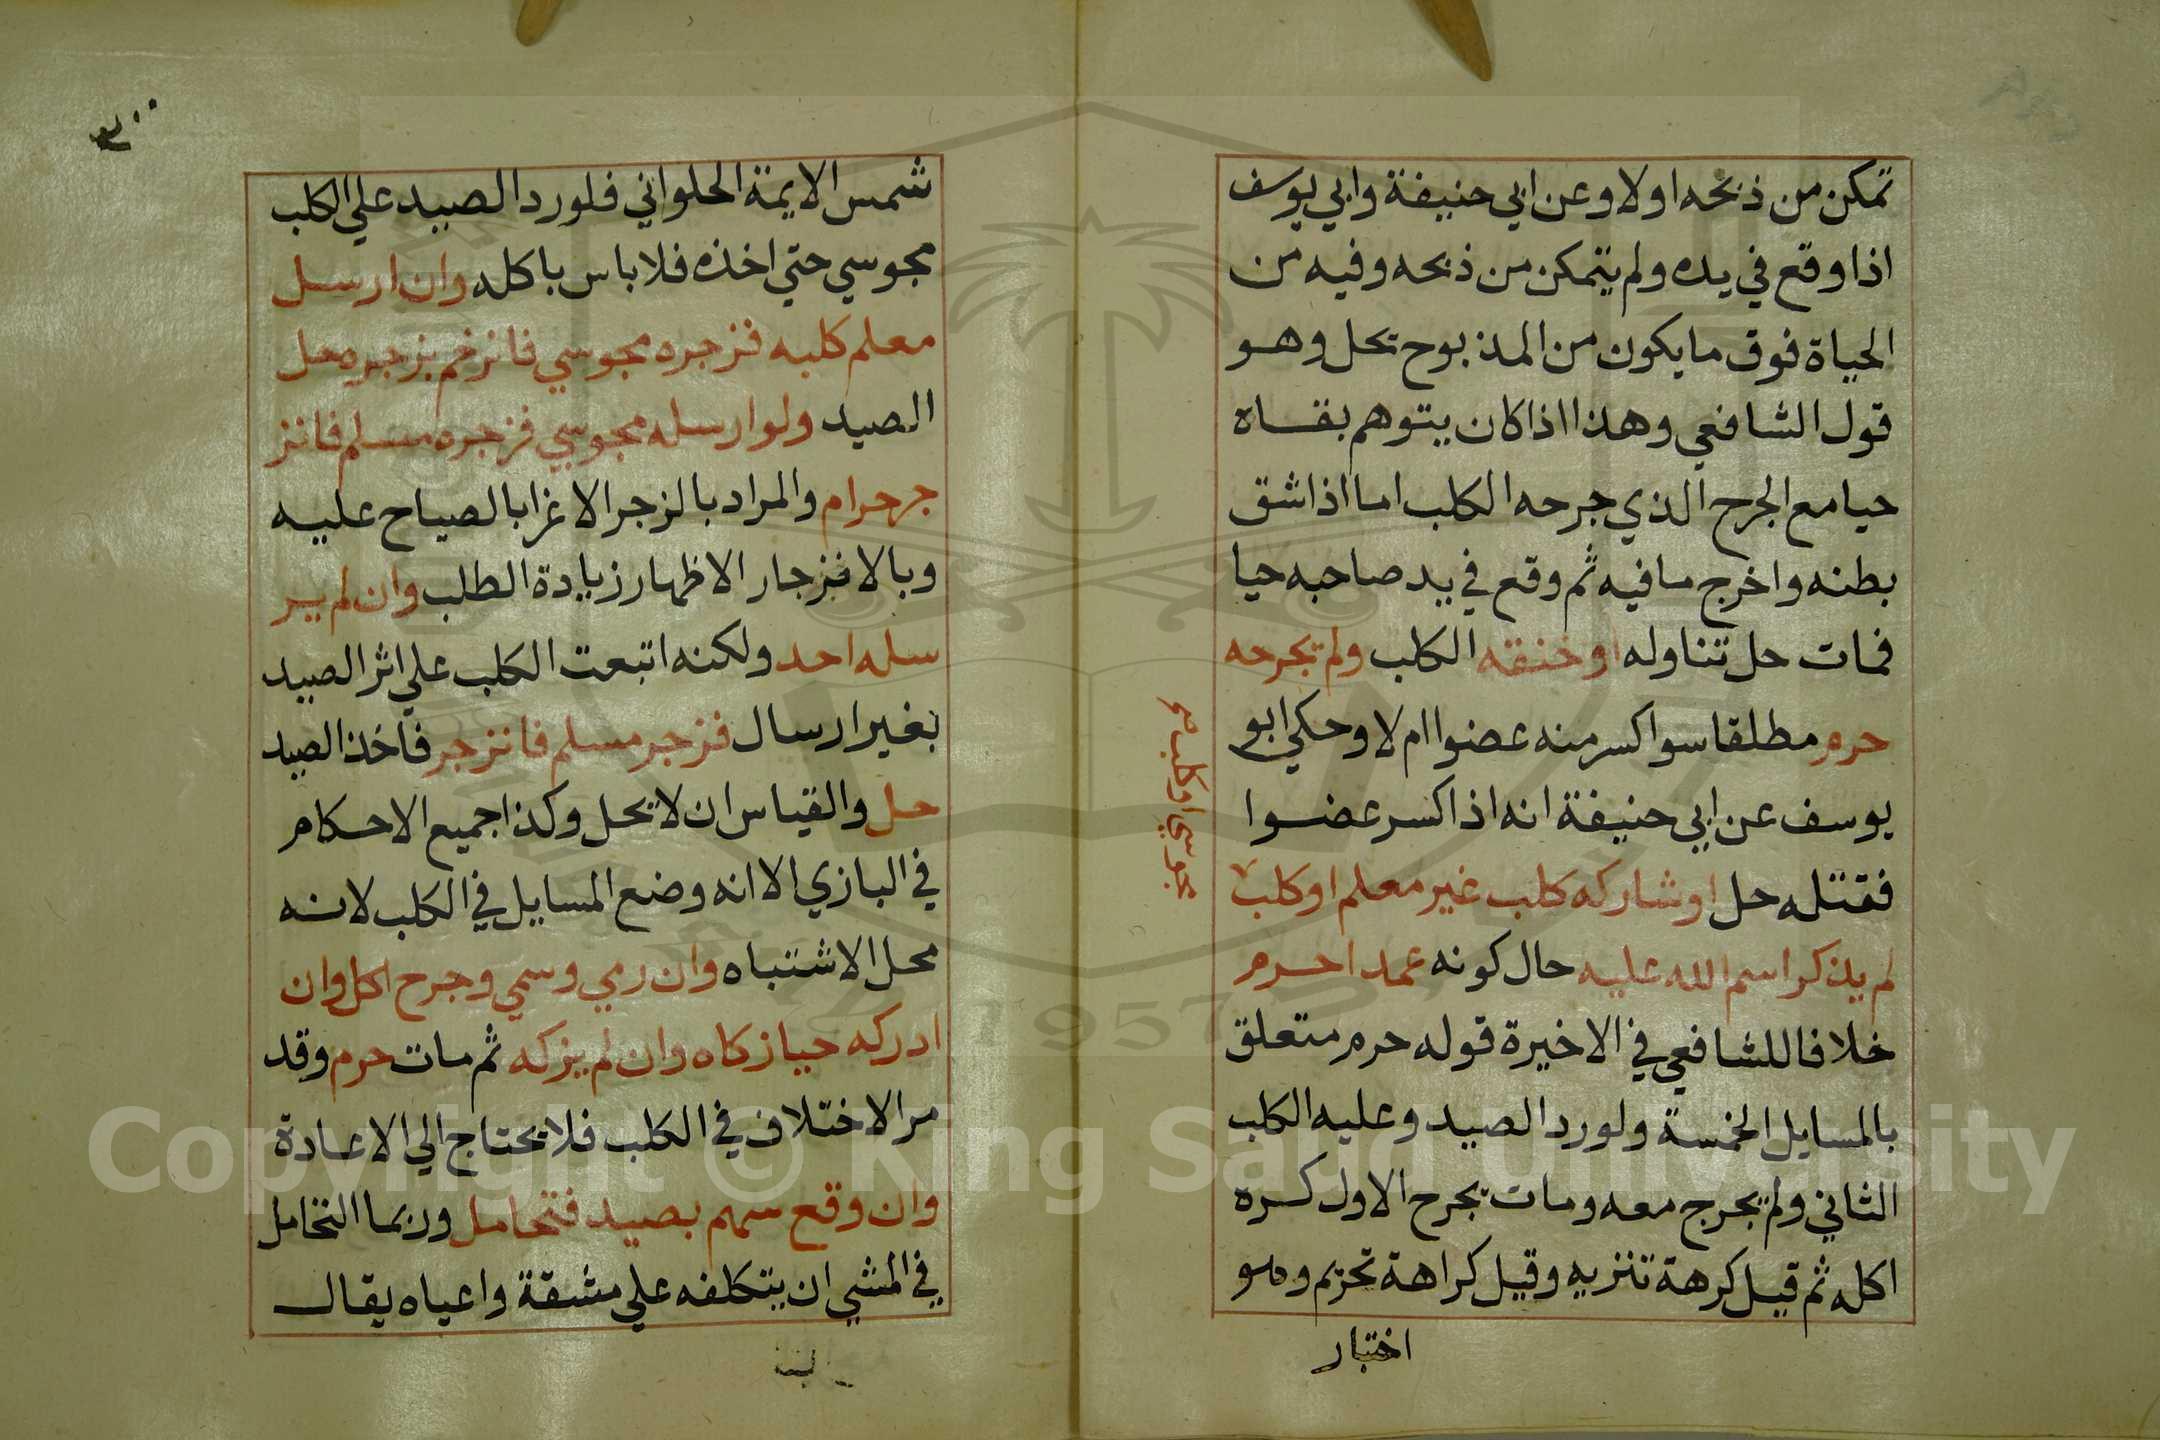 تمكن من ذبحه اولا وعن ابي حنيفة وابي يوسف
اذا وقع في يده ولم يتمكن من ذبحه وفيه من
الحياة فوق ما يكون من المذبوح يحل وهو
قول الشافعي وهذا اذا كان يتوهم بقاه
حيا مع الجرح الذي جرحه الكلب اما اذا شق
بطنه واخرج ما فيه ثم وقع في يد صاحبه حيا
فمات حل تناوله او خنقه الكلب ولم يجرحه
حرم مطلقا سوا كسر منه عضوا ام لا وحكي ابو
يوسف عن ابي حنيفة انه اذا كسر عضوا
فقتله حل او شاركه كلب غير معلم او كلب
مجوسي او كلب صح
لم يذكر اسم الله عليه حال كونه عمدا حرم
خلافا للشافعي في الاخيرة قوله حرم متعلق
بالمسايل الخمسة ولو رد الصيد وعليه الكلب
الثاني ولم يجرح معه ومات بجرح الاول كره
اكله ثم قيل كرهة تنزيه وقيل كراهة تحريم وهو
اختبار
٣٠٠
شمس الايمة الحلواني فلو رد الصيد علي الكلب
مجوسي حتي اخذه فلا باس باكله وان ارسل
معلم كلبه فزجره مجوسي فانزخم بزجره حل
الصيد ولو ارسله مجوسي فزجره مسلم فانز
جر حرام والمراد بالزجر الاغرا بالصياح عليه
وبالانزجار الاظهار زيادة الطلب وان لم ير
سله احد ولكنه اتبعت الكلب علي اثر الصيد
بغير ارسال فزجر مسلم فانزجر فاخذ الصيد
حل والقياس ان لا يحل وكذا جميع الاحكام
في البازي الا انه وضع المسايل في الكلب لانه
محل الاشتباه وان رمي وسمي وجرح اكل وان
ادركه حيا زكاه وان لم يزكه ثم مات حرم وقد
مر الاختلاف في الكلب فلا يحتاج الي الاعادة
وان وقع سهم بصيد فتحامل وربما التحامل
في المشي ان يتكلفه علي مشقة واعياه يقال
Copyright © King Saud University
1957